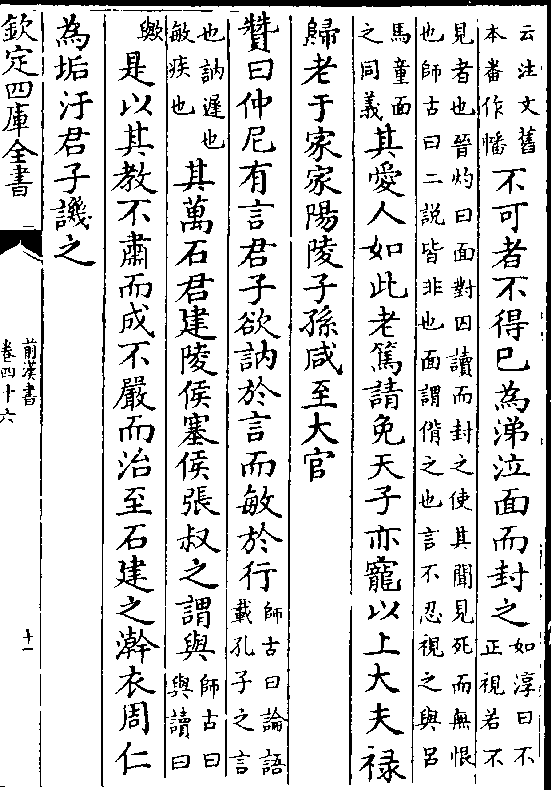 云注文舊
本畨作幡
不可者不得已為涕泣面而封之
如淳曰不
正視若不
見者也晉灼曰面對囚讀而封之使其聞見死而無恨
也師古曰二説皆非也面謂偝之也言不忍視之與呂
馬童面
之同義
其愛人如此老篤請免天子亦寵以上大夫禄
歸老于家家陽陵子孫咸至大官
贊曰仲尼有言君子欲訥於言而敏於行
師古曰論語
載孔子之言
也訥遲也
敏疾也
其萬石君建陵侯塞侯張叔之謂與
師古曰
與讀曰
歟
是以其教不肅而成不嚴而治至石建之澣衣周仁
為垢汙君子譏之
欽定四庫全書
前漢書
卷四十六
十一